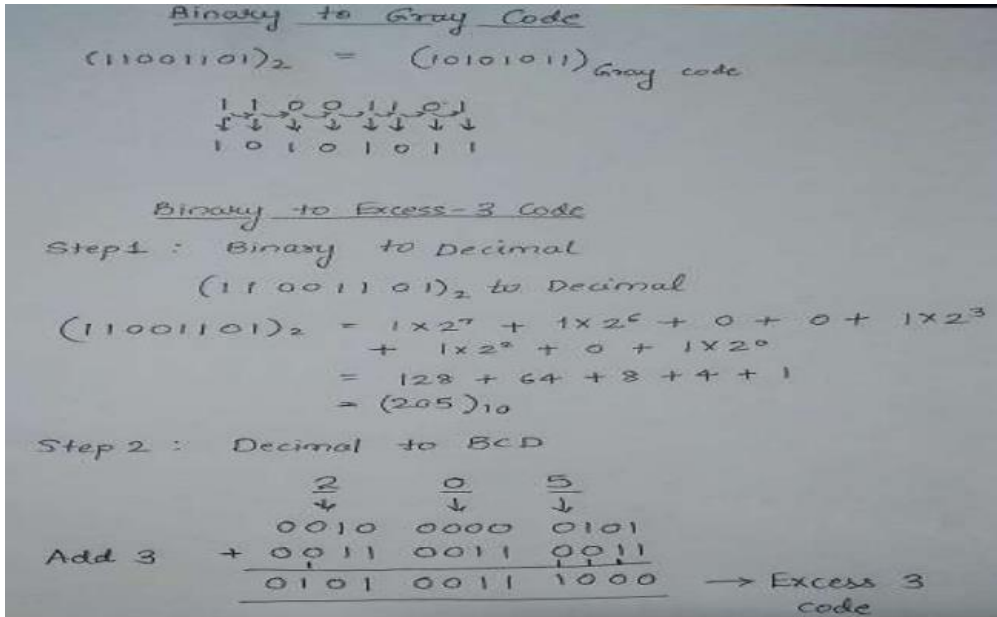 Binary to Gray Code
(11001101)₂ = (10101011) Gray code
1 1 0 0 1 1 0 1
1 0 1 0 1 0 1 1
Binary to Excess-3 Code
Step 1 : Binary to Decimal
(11001101)₂ to Decimal
(11001101)₂ = 1×2⁷ + 1×2⁶ + 0 + 0 + 1×2³
+ 1×2² + 0 + 1×2⁰
= 128 + 64 + 8 + 4 + 1
= (205)₁₀
Step 2 : Decimal to BCD
2 0 5
0010 0000 0101
Add 3 + 0011 0011 0011
0101 0011 1000 → Excess 3
code